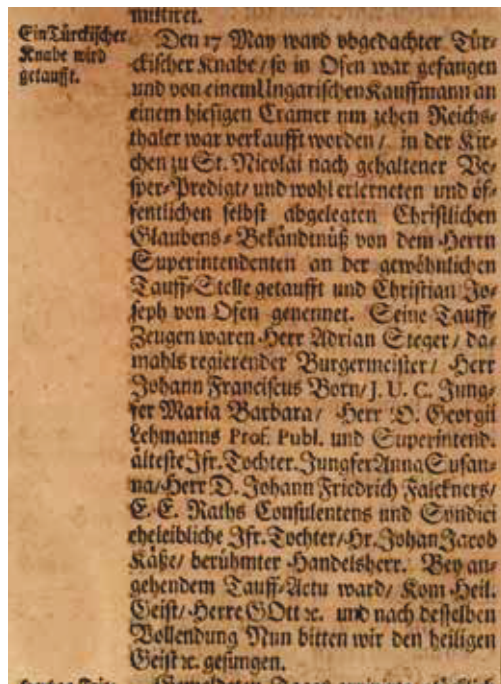 mutiret.
Ein Türckischer
Knabe wird
getaufft.
Den 17 May ward obgedachter Tür-
ckischer Knabe / so in Ofen war gefangen
und von einem Ungarischen Kauffmann an
einem hiesigen Cramer um zehen Reichs-
thaler war verkaufft worden / in der Kir-
chen zu St. Nicolai nach gehaltener Ve-
sper-Predigt / und wohl erlerneten und öf-
fentlichen selbst abgelegten Christlichen
Glaubens-Bekändtnüß von dem Herrn
Superintendenten an der gewöhnlichen
Tauff-Stelle getaufft und Christian Jo-
seph von Ofen genennet. Seine Tauff-
Zeugen waren Herr Adrian Steger / da-
mahls regierender Burgermeister / Herr
Johann Franciscus Born / J. U. C. Jung-
fer Maria Barbara / Herr D. Georgii
Lehmanns Prof. Publ. und Superintend-
älteste Jfr. Tochter. Jungfer Anna Susan-
na / Herr D. Johann Friedrich Falckners /
E. E. Raths Consulentens und Syndici
eheleibliche Jfr. Tochter / Hr. Johan Jacob
Käße / berühmter Handelsherr. Bey an-
gehendem Tauff-Actu ward / Kom Heil.
Geist / Herre GOtt ꝛc. und nach desselben
Vollendung Nun bitten wir den heiligen
Geist ꝛc. gesungen.